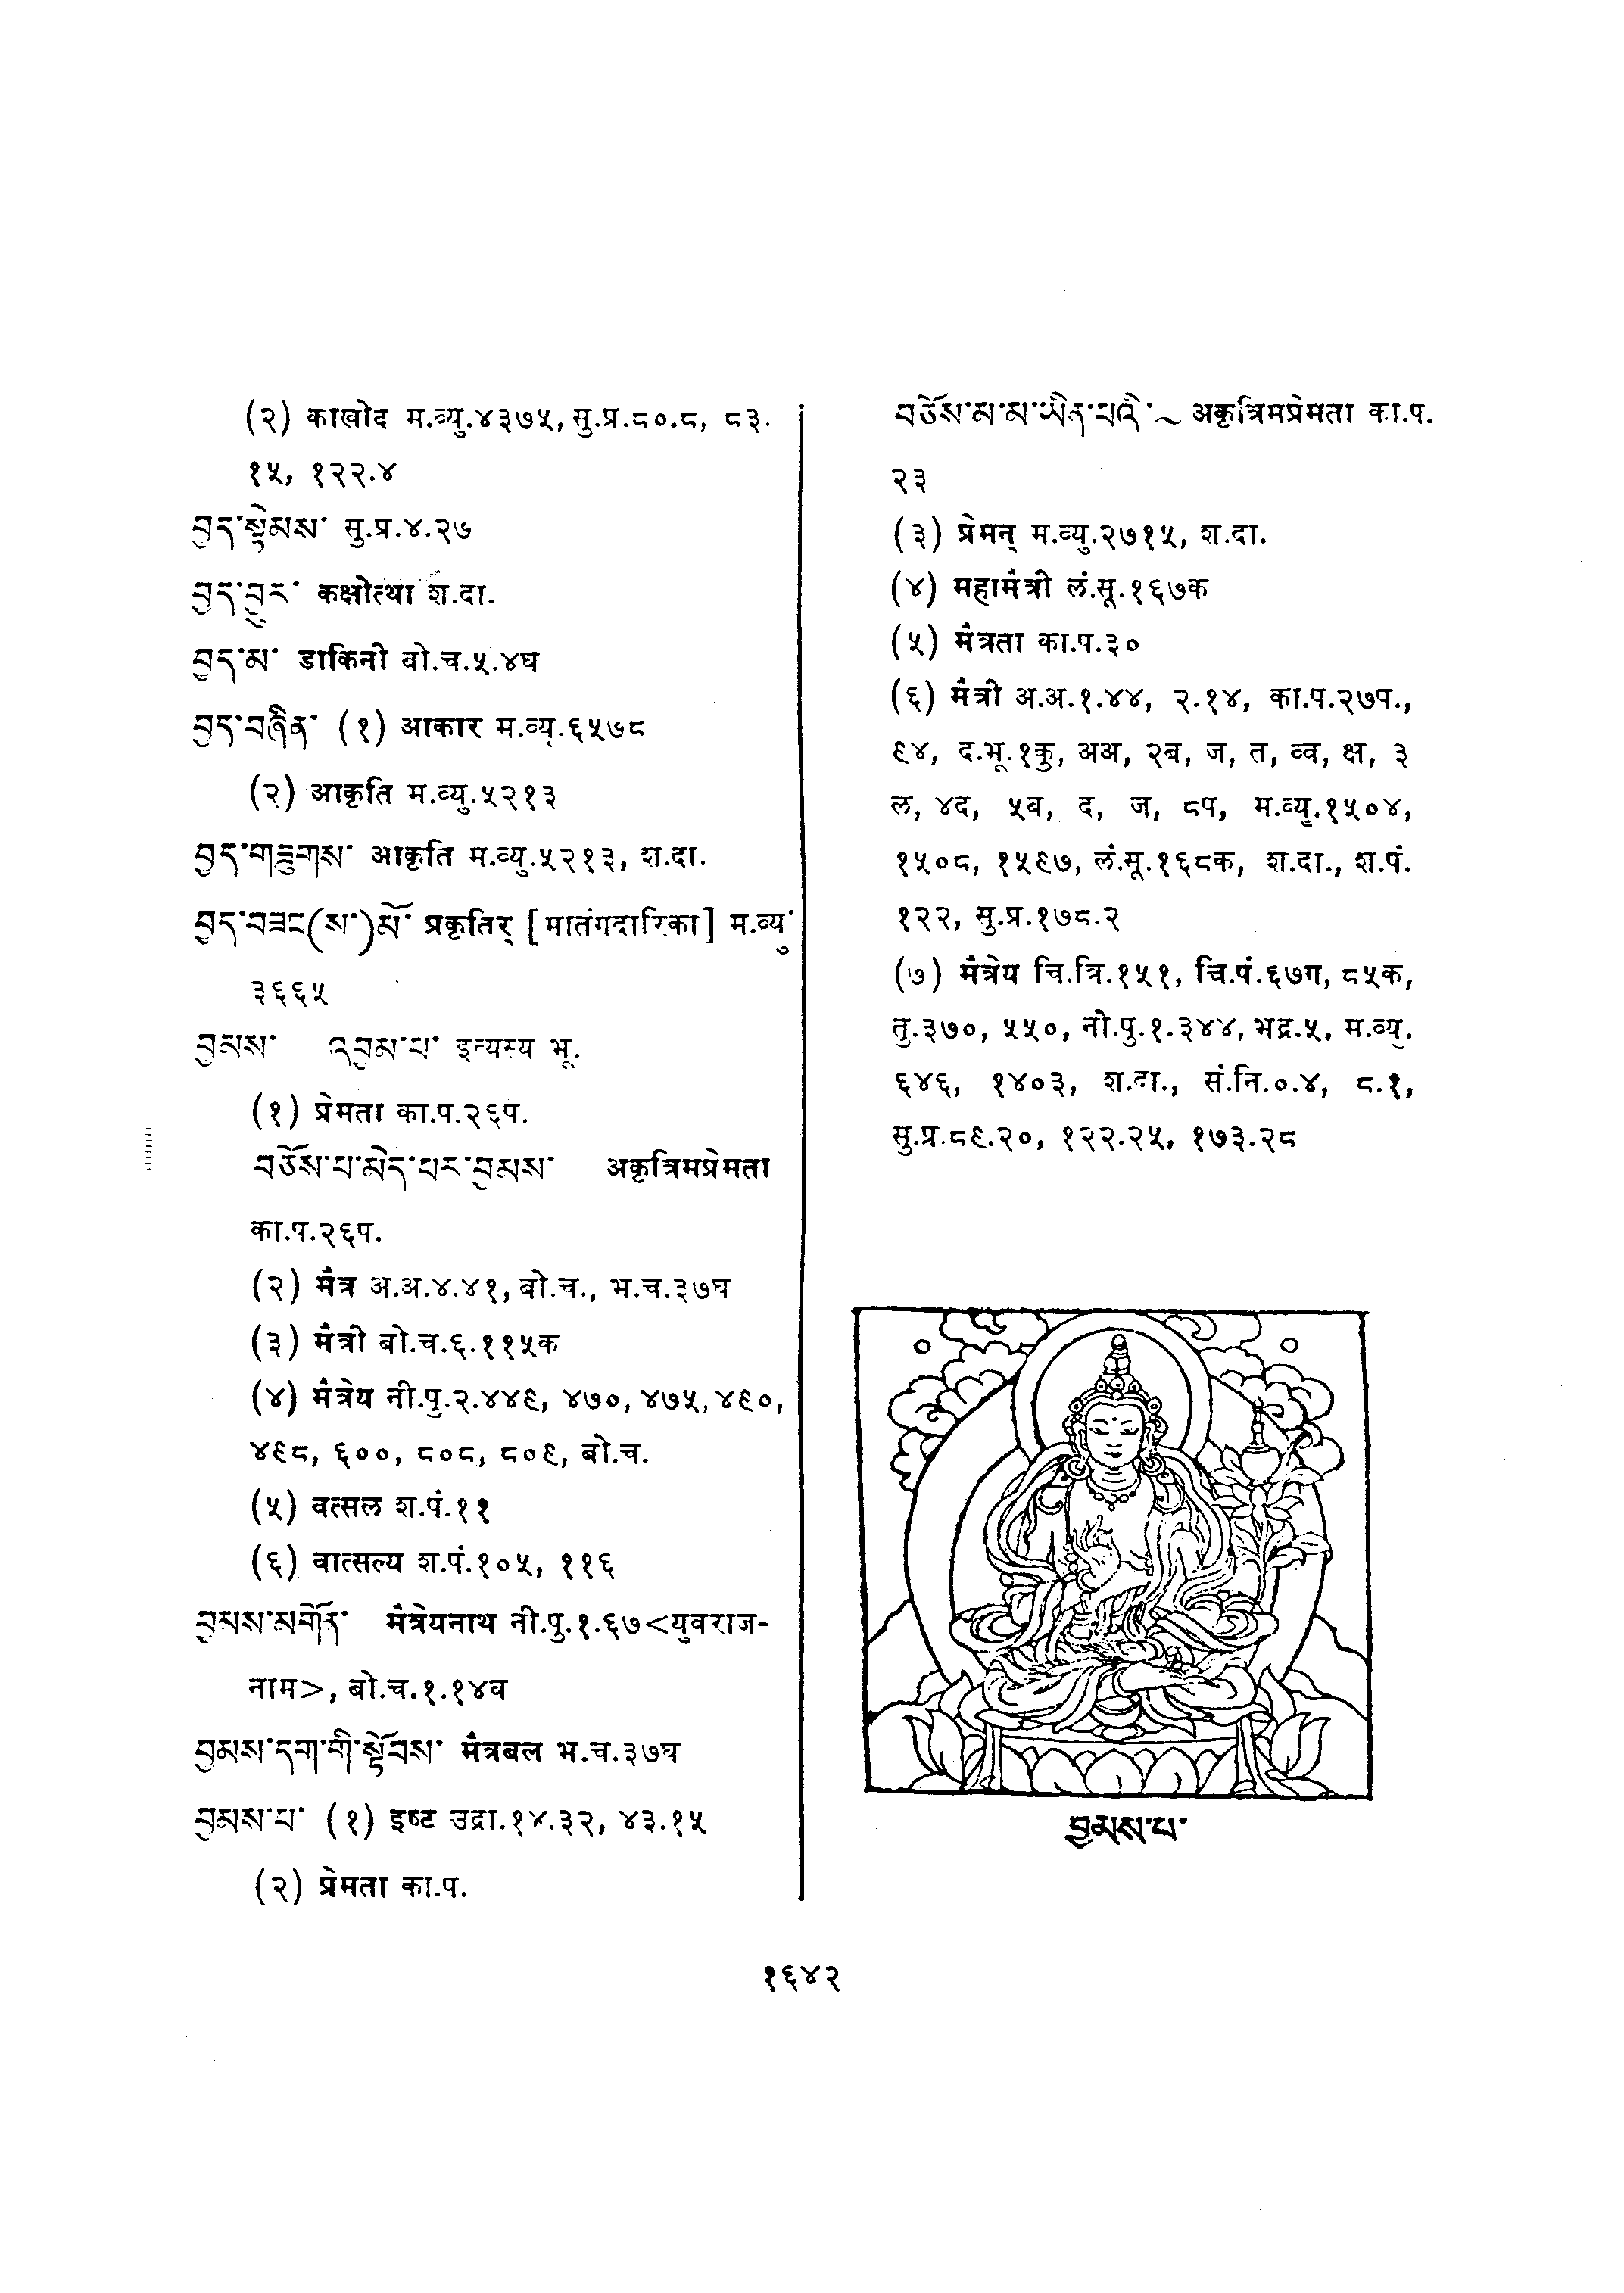 (२) काखोद म.व्यु.४३७५, सु.प्र.८०.८, ८३.
१५, १२२.४
བྱད་སྟེམས་ सु.प्र.४.२७
བྱད་བུར་ कक्षोत्था श.दा.
བྱད་མ་ डाकिनी बो.च.५.४घ
བྱད་བཞིན་ (१) आकार म.व्यु.६५७८
(२) आकृति म.व्यु.५२१३
བྱད་གཟུགས་ आकृति म.व्यु.५२१३, श.दा.
བྱད་བཟང(ས་)མོ་ प्रकृतिर् [मातंगदारिका] म.व्यु.
३६६५
བྱམས་ འབྱམ་པ་ इत्यस्य भू.
(१) प्रेमता का.प.२६प.
བཅོས་པ་མེད་པར་བྱམས་ अकृत्रिमप्रेमता
का.प.२६प.
(२) मैत्र अ.अ.४.४१, बो.च., भ.च.३७घ
(३) मैत्री बो.च.६.११५क
(४) मैत्रेय नी.पु.२.४४९, ४७०, ४७५, ४९०,
४९८, ६००, ८०८, ८०९, बो.च.
(५) वत्सल श.पं.११
(६) वात्सल्य श.पं.१०५, ११६
བྱམས་མགོན་ मैत्रेयनाथ नी.पु.१.६७<युवराज-
नाम>, बो.च.१.१४घ
བྱམས་དག་གི་སྟོབས་ मैत्रबल भ.च.३७घ
བྱམས་པ་ (१) इष्ट उद्रा.१४.३२, ४३.१५
(२) प्रेमता का.प.
བཅོས་མ་མ་ཡིན་པའི་ ~ अकृत्रिमप्रेमता का.प.
२३
(३) प्रेमन् म.व्यु.२७१५, श.दा.
(४) महामैत्री लं.सू.१६७क
(५) मैत्रता का.प.३०
(६) मैत्री अ.अ.१.४४, २.१४, का.प.२७प.,
९४, द.भू.१कु, अअ, २ब, ज, त, व्व, क्ष, ३
ल, ४द, ५ब, द, ज, ८प, म.व्यु.१५०४,
१५०८, १५९७, लं.सू.१६८क, श.दा., श.पं.
१२२, सु.प्र.१७८.२
(७) मैत्रेय चि.त्रि.१५१, चि.पं.६७ग, ८५क,
तु.३७०, ५५०, नी.पु.१.३४४, भद्र.५, म.व्यु.
६४६, १४०३, श.दा., सं.नि.०.४, ८.१,
सु.प्र.८९.२०, १२२.२५, १७३.२८
བྱམས་པ་
१६४२